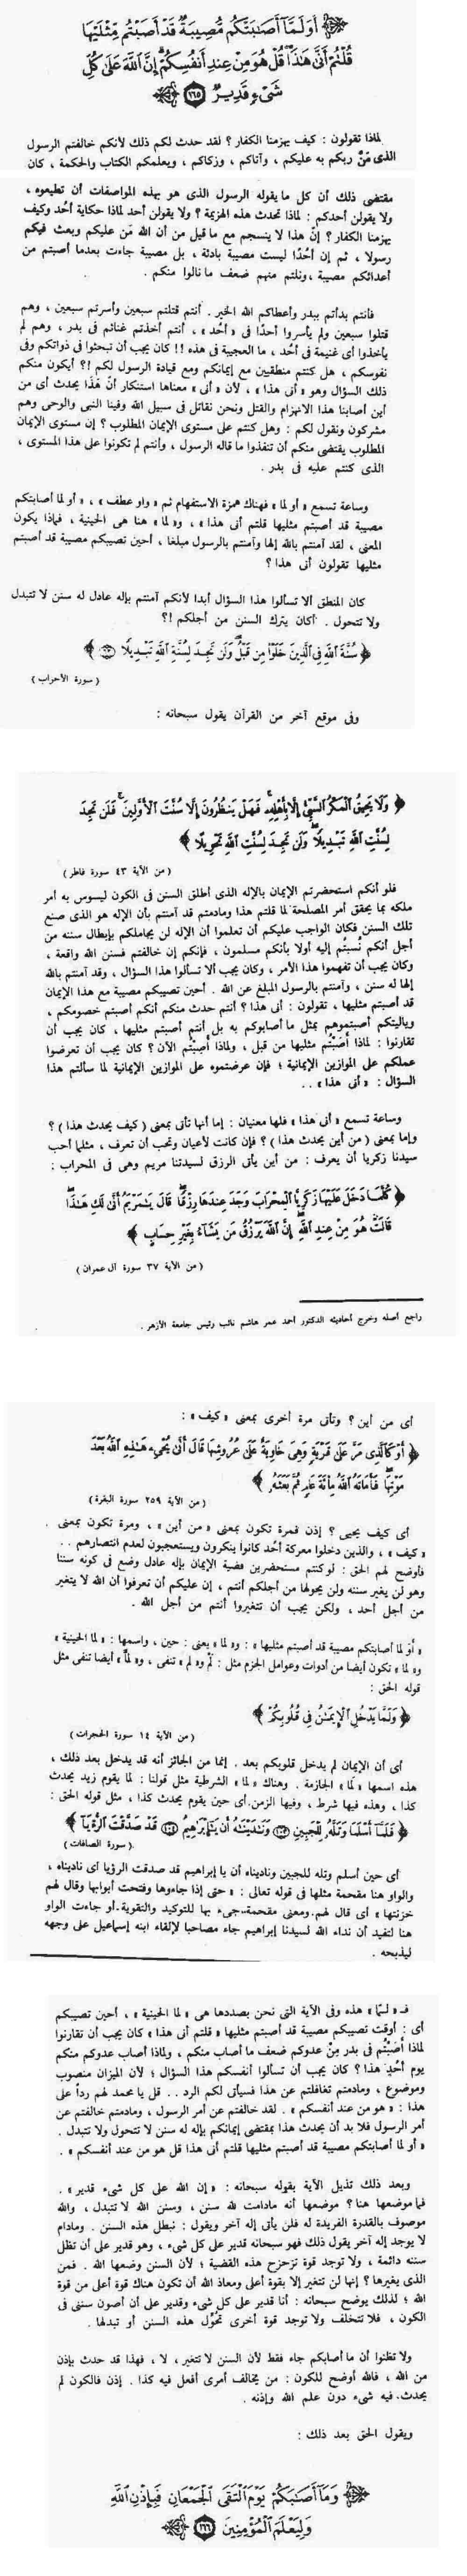 ﴿ أَوَلَمَّآ أَصَٰبَتْكُم مُّصِيبَةٌ قَدْ أَصَبْتُم مِّثْلَيْهَا
قُلْتُمْ أَنَّىٰ هَٰذَا قُلْ هُوَ مِنْ عِندِ أَنفُسِكُمْ إِنَّ ٱللَّهَ عَلَىٰ كُلِّ
شَىْءٍ قَدِيرٌ ١٦٥ ﴾
لماذا تقولون : كيف يهزمنا الكفار ؟ لقد حدث لكم ذلك لأنكم خالفتم الرسول
الذى مَنّ ربكم به عليكم ، وآتاكم ، وزكاكم ، ويعلمكم الكتاب والحكمة ، كان
مقتضى ذلك أن كل ما يقوله الرسول الذى هو بهذه المواصفات أن تطيعوه ،
ولا يقولن أحدكم : لماذا تحدث هذه الهزيمة ؟ ولا يقولن أحد لماذا حكاية أُحُد وكيف
يهزمنا الكفار ؟ إنّ هذا لا ينسجم مع ما قيل من أن الله مَن عليكم وبعث فيكم
رسولا ، ثم إن أُحُدًا ليست مصيبة بادئة ، بل مصيبة جاءت بعدما أصبتم من
أعدائكم مصيبة ، ونلتم منهم ضعف ما نالوا منكم .
فأنتم بدأتم ببدر وأعطاكم الله الخير . أنتم قتلتم سبعين وأسرتم سبعين ، وهم
قتلوا سبعين ولم يأسروا أحدًا فى « أُحُد » ، أنتم أخذتم غنائم فى بدر ، وهم لم
يأخذوا أى غنيمة فى أُحد ، ما العجيبة فى هذه !! كان يجب أن تبحثوا فى ذواتكم وفى
نفوسكم ، هل كنتم منطقيين مع إيمانكم ومع قيادة الرسول لكم !؟ أيكون منكم
ذلك السؤال وهو « أنى هذا » ، لأن « أنى » معناها استنكار أنّ هٰذا يحدث أى من
أين أصابنا هذا الانهزام والقتل ونحن نقاتل فى سبيل الله وفينا النبى والوحى وهم
مشركون ونقول لكم : وهل كنتم على مستوى الإيمان المطلوب ؟ إن مستوى الإيمان
المطلوب يقتضى منكم أن تنفذوا ما قاله الرسول ، وأنتم لم تكونوا على هذا المستوى ،
الذى كنتم عليه فى بدر .
وساعة تسمع « أو لما » فهناك همزة الاستفهام ثم « واو عطف » ، « أو لما أصابتكم
مصيبة قد أصبتم مثليها قلتم أنى هذا » ، و« لما » هنا هى الحينية ، فماذا يكون
المعنى ، لقد آمنتم بالله إلها وآمنتم بالرسول مبلغا ، أحين تصيبكم مصيبة قد أصبتم
مثليها تقولون أنى هذا ؟
كان المنطق ألا تسألوا هذا السؤال أبدا لأنكم آمنتم بإله عادل له سنن لا تتبدل
ولا تتحول . أكان يترك السنن من أجلكم !؟
﴿ سُنَّةَ ٱللَّهِ فِى ٱلَّذِينَ خَلَوْا۟ مِن قَبْلُ وَلَن تَجِدَ لِسُنَّةِ ٱللَّهِ تَبْدِيلًا ٦٢ ﴾
( سورة الأحزاب )
وفى موقع آخر من القرآن يقول سبحانه :
﴿ وَلَا يَحِيقُ ٱلْمَكْرُ ٱلسَّيِّئُ إِلَّا بِأَهْلِهِۦ فَهَلْ يَنظُرُونَ إِلَّا سُنَّتَ ٱلْأَوَّلِينَ فَلَن تَجِدَ
لِسُنَّتِ ٱللَّهِ تَبْدِيلًا وَلَن تَجِدَ لِسُنَّتِ ٱللَّهِ تَحْوِيلًا ﴾
( من الآية ٤٣ سورة فاطر )
فلو أنكم استحضرتم الإيمان بالإله الذى أطلق السنن فى الكون ليسوس به أمر
ملكه بما يحقق أمر المصلحة لما قلتم هذا ومادمتم قد آمنتم بأن الإله هو الذى صنع
تلك السنن فكان الواجب عليكم أن تعلموا أن الإله لن يجاملكم بإبطال سننه من
أجل أنكم نُسبتُم إليه أولا بأنكم مسلمون ، فإنكم إن خالفتم فسنن الله واقعة ،
وكان يجب أن تفهموا هذا الأمر ، وكان يجب ألا تسألوا هذا السؤال ، وقد آمنتم بالله
إلها له سنن ، وآمنتم بالرسول المبلغ عن الله . أحين تصيبكم مصيبة مع هذا الإيمان
قد أصبتم مثليها ، تقولون : أنى هذا ؟ أنتم حدث منكم أنكم أصبتم خصومكم ،
وياليتكم أصبتموهم بمثل ما أصابوكم به بل أنتم أصبتم مثليها ، كان يجب أن
تقارنوا : لماذا أَصَبْتُم مثليها من قبل ، ولماذا أُصِبْتُم الآن ؟ كان يجب أن تعرضوا
عملكم على الموازين الإيمانية ؛ فإن عرضتموه على الموازين الإيمانية لما سألتم هذا
السؤال : « أنى هذا » . .
وساعة تسمع « أنى هذا » فلها معنيان : إما أنها تأتى بمعنى ( كيف يحدث هذا ) ؟
وإما بمعنى ( من أين يحدث هذا ) ؟ فإن كانت لأعيان وتحب أن تعرف ، مثلما أحب
سيدنا زكريا أن يعرف : من أين يأتى الرزق لسيدتنا مريم وهى فى المحراب :
﴿ كُلَّمَا دَخَلَ عَلَيْهَا زَكَرِيَّا ٱلْمِحْرَابَ وَجَدَ عِندَهَا رِزْقًا قَالَ يَٰمَرْيَمُ أَنَّىٰ لَكِ هَٰذَا
قَالَتْ هُوَ مِنْ عِندِ ٱللَّهِ إِنَّ ٱللَّهَ يَرْزُقُ مَن يَشَآءُ بِغَيْرِ حِسَابٍ ﴾
( من الآية ٣٧ سورة آل عمران )
راجع أصله وخرج أحاديثه الدكتور أحمد عمر هاشم نائب رئيس جامعة الأزهر .
أى من أين ؟ وتأتى مرة أخرى بمعنى « كيف » :
﴿ أَوْ كَٱلَّذِى مَرَّ عَلَىٰ قَرْيَةٍ وَهِىَ خَاوِيَةٌ عَلَىٰ عُرُوشِهَا قَالَ أَنَّىٰ يُحْىِۦ هَٰذِهِ ٱللَّهُ بَعْدَ
مَوْتِهَا فَأَمَاتَهُ ٱللَّهُ مِا۟ئَةَ عَامٍ ثُمَّ بَعَثَهُۥ ﴾
( من الآية ٢٥٩ سورة البقرة )
أى كيف يحيى ؟ إذن فمرة تكون بمعنى « من أين » ، ومرة تكون بمعنى
« كيف » ، والذين دخلوا معركة أُحُد كانوا ينكرون ويستعجبون لعدم انتصارهم . .
فأوضح لهم الحق : لو كنتم مستحضرين قضية الإيمان بإله عادل وضع فى كونه سننا
وهو لن يغير سننه ولن يحولها من أجلكم أنتم ، إن عليكم أن تعرفوا أن الله لا يتغير
من أجل أحد ، ولكن يجب أن تتغيروا أنتم من أجل الله .
« أوَ لما أصابتكم مصيبة قد أصبتم مثليها » : و« لما » يعنى : حين ، واسمها : « لما الحينية »
و« لما » تكون أيضا من أدوات وعوامل الجزم مثل : لَمْ و« لم » تنفى ، و« لمّا » أيضا تنفى مثل
قوله الحق :
﴿ وَلَمَّا يَدْخُلِ ٱلْإِيمَٰنُ فِى قُلُوبِكُمْ ﴾
( من الآية ١٤ سورة الحجرات )
أى أن الإيمان لم يدخل قلوبكم بعد . إنما من الجائز أنه قد يدخل بعد ذلك ،
هذه اسمها « لَما » الجازمة . وهناك « لما » الشرطية مثل قولنا : لما يقوم زيد يحدث
كذا ، وهذه فيها شرط ، وفيها الزمن . أى حين يقوم يحدث كذا ، مثل قوله الحق :
﴿ فَلَمَّآ أَسْلَمَا وَتَلَّهُۥ لِلْجَبِينِ ١٠٣ وَنَٰدَيْنَٰهُ أَن يَٰٓإِبْرَٰهِيمُ ١٠٤ قَدْ صَدَّقْتَ ٱلرُّءْيَآ ﴾
( سورة الصافات )
أى حين أسلم وتله للجبين وناديناه أن يا إبراهيم قد صدقت الرؤيا أى ناديناه ،
والواو هنا مقحمة مثلها فى قوله تعالى : « حتى إذا جاءوها وفتحت أبوابها وقال لهم
خزنتها » أى قال لهم . ومعنى مقحمة . جىء بها للتوكيد والتقوية . أو جاءت الواو
هنا لتفيد أن نداء الله لسيدنا إبراهيم جاء مصاحبا لإلقاء ابنه إسماعيل على وجهه
ليذبحه .
فـ « لَـمَّا » هذه وفى الآية التى نحن بصددها هى « لما الحينية » ، أحين تصيبكم
أى : أوقت تصيبكم مصيبة قد أصبتم مثليها « قلتم أنى هذا » كان يجب أن تقارنوا
لماذا أَصَبْتُم فى بدر مِنْ عدوكم ضعف ما أصاب منكم ، ولماذا أصاب عدوكم منكم
يوم أُحُدٍ هذا ؟ كان يجب أن تسألوا أنفسكم هذا السؤال ؛ لأن الميزان منصوب
وموضوع ، ومادمتم تغافلتم عن هذا فسيأتى لكم الرد . . قل يا محمد لهم رداً على
هذا : « هو من عند أنفسكم » . لقد خالفتم عن أمر الرسول ، ومادمتم خالفتم عن
أمر الرسول فلا بد أن يحدث هذا بمقتضى إيمانكم بإله له سنن لا تتحول ولا تتبدل .
« أو لما أصابتكم مصيبة قد أصبتم مثليها قلتم أنى هذا قل هو من عند أنفسكم » .
وبعد ذلك تذيل الآية بقوله سبحانه : « إن الله على كل شىء قدير » .
فما موضعها هنا ؟ موضعها أنه مادامت لله سنن ، وسنن الله لا تتبدل ، والله
موصوف بالقدرة الفريدة له فلن يأتى إله آخر ويقول : نبطل هذه السنن . ومادام
لا يوجد إله آخر يقول ذلك فهو سبحانه قدير على كل شىء ، وهو قدير على أن تظل
سننه دائمة ، ولا توجد قوة تزحزح هذه القضية ؛ لأن السنن وضعها الله . فمن
الذى يغيرها ؟ إنها لن تتغير إلا بقوة أعلى ومعاذ الله أن تكون هناك قوة أعلى من قوة
الله ؛ لذلك يوضح سبحانه : أنا قدير على كل شىء وقدير على أن أصون سننى فى
الكون ، فلا تتخلف ولا توجد قوة أخرى تحوّل هذه السنن أو تبدلها .
ولا تظنوا أن ما أصابكم جاء فقط لأن السنن لا تتغير ، لا ، فهذا قد حدث بإذن
من الله ، فالله أوضح للكون : من يخالف أمرى أفعل فيه كذا . إذن فالكون لم
يحدث فيه شىء دون علم الله وإذنه .
ويقول الحق بعد ذلك :
﴿ وَمَآ أَصَٰبَكُمْ يَوْمَ ٱلْتَقَى ٱلْجَمْعَانِ فَبِإِذْنِ ٱللَّهِ
وَلِيَعْلَمَ ٱلْمُؤْمِنِينَ ١٦٦ ﴾